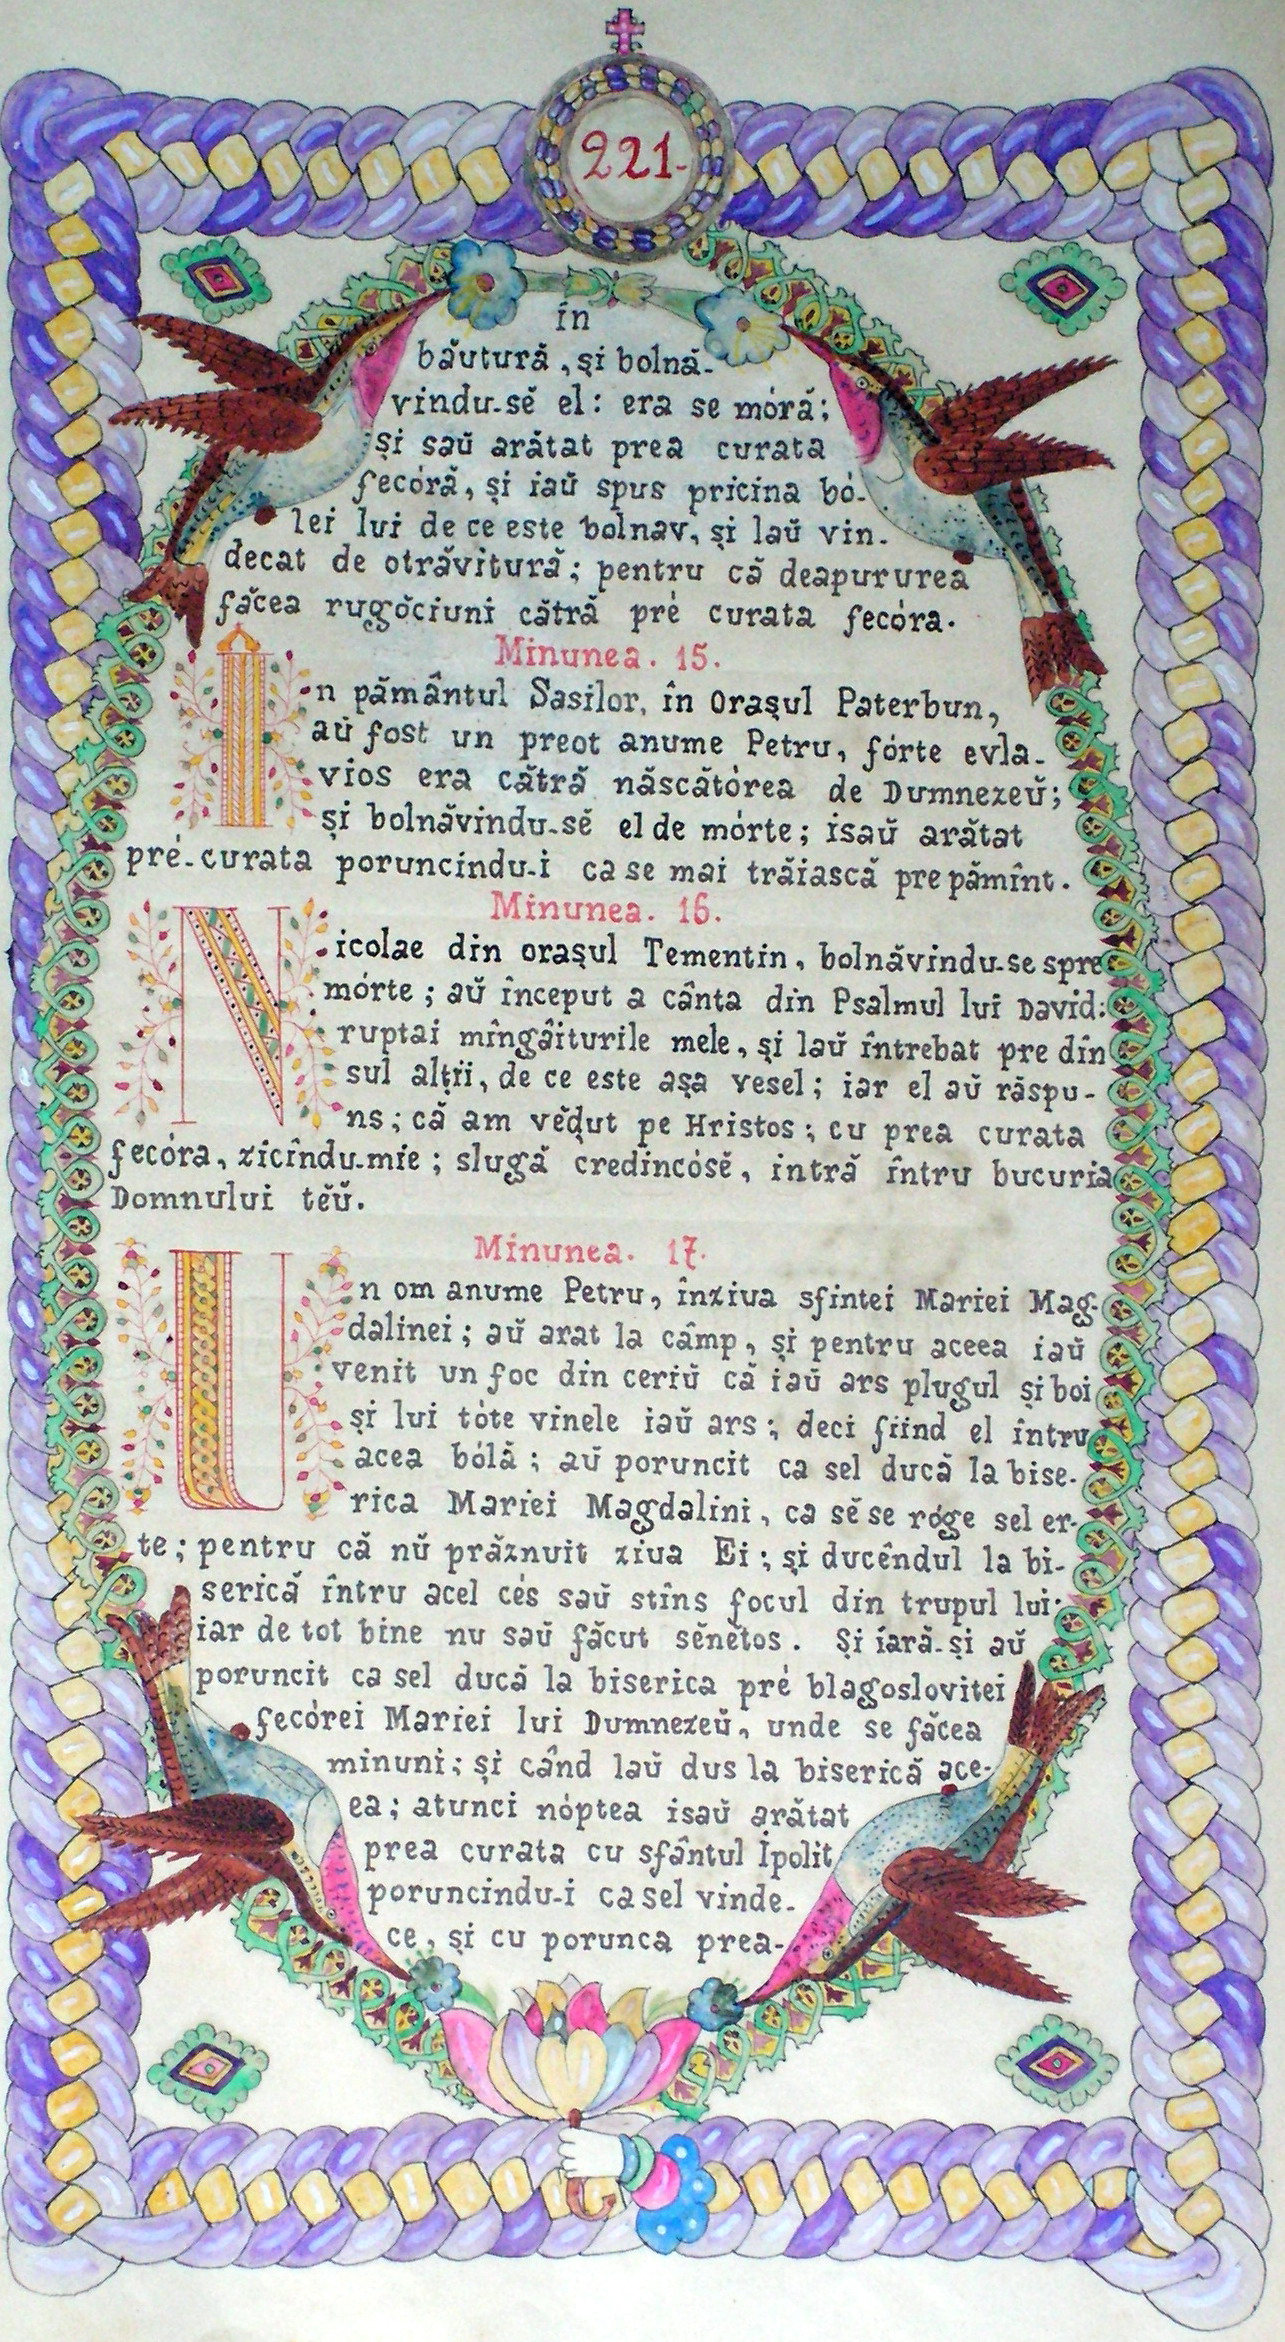 221.
în
băutură, și bolnă-
vindu-sĕ el: era se móră;
și saŭ arătat prea curata
fecóră, și iaŭ spus pricina bó-
lei lui de ce este bolnav, și laŭ vin-
decat de otrăvitură; pentru că deapururea
făcea rugóciuni cătră pré curata fecóra.
Minunea. 15.
In pământul Sasilor, în Orașul Paterbun,
aŭ fost un preot anume Petru, fórte evla-
vios era cătră născătórea de Dumnezeŭ;
și bolnăvindu-sĕ el de mórte; isaŭ arătat
pré-curata poruncindu-i ca se mai trăiască pre pămînt.
Minunea. 16.
Nicolae din orașul Tementin, bolnăvindu-se spre
mórte; aŭ început a cânta din Psalmul lui David:
ruptai mîngâiturile mele, și laŭ întrebat pre dîn
sul alții, de ce este așa vesel; iar el aŭ răspu-
ns; că am vĕḑut pe Hristos; cu prea curata
fecóra, zicîndu-mie; slugă credincósĕ, intră întru bucuria
Domnului tĕŭ.
Minunea. 17.
Un om anume Petru, înziua sfintei Mariei Mag-
dalinei; aŭ arat la câmp, și pentru aceea iaŭ
venit un foc din ceriŭ că iaŭ ars plugul și boi
și lui tóte vinele iaŭ ars; deci fiind el întru
acea bólă; aŭ poruncit ca sel ducă la bise-
rica Mariei Magdalini, ca sĕ se róge sel er-
te; pentru că nŭ prăznuit ziua Ei; și ducêndul la bi-
serică întru acel cés saŭ stîns focul din trupul lui;
iar de tot bine nu saŭ făcut sĕnĕtos. Și iară-și aŭ
poruncit ca sel ducă la biserica pré blagoslovitei
fecórei Mariei lui Dumnezeŭ, unde se făcea
minuni; și când laŭ dus la biserică ace-
ea; atunci nóptea isaŭ arătat
prea curata cu sfântul Ipolit
poruncindu-i ca sel vinde-
ce, și cu porunca prea-